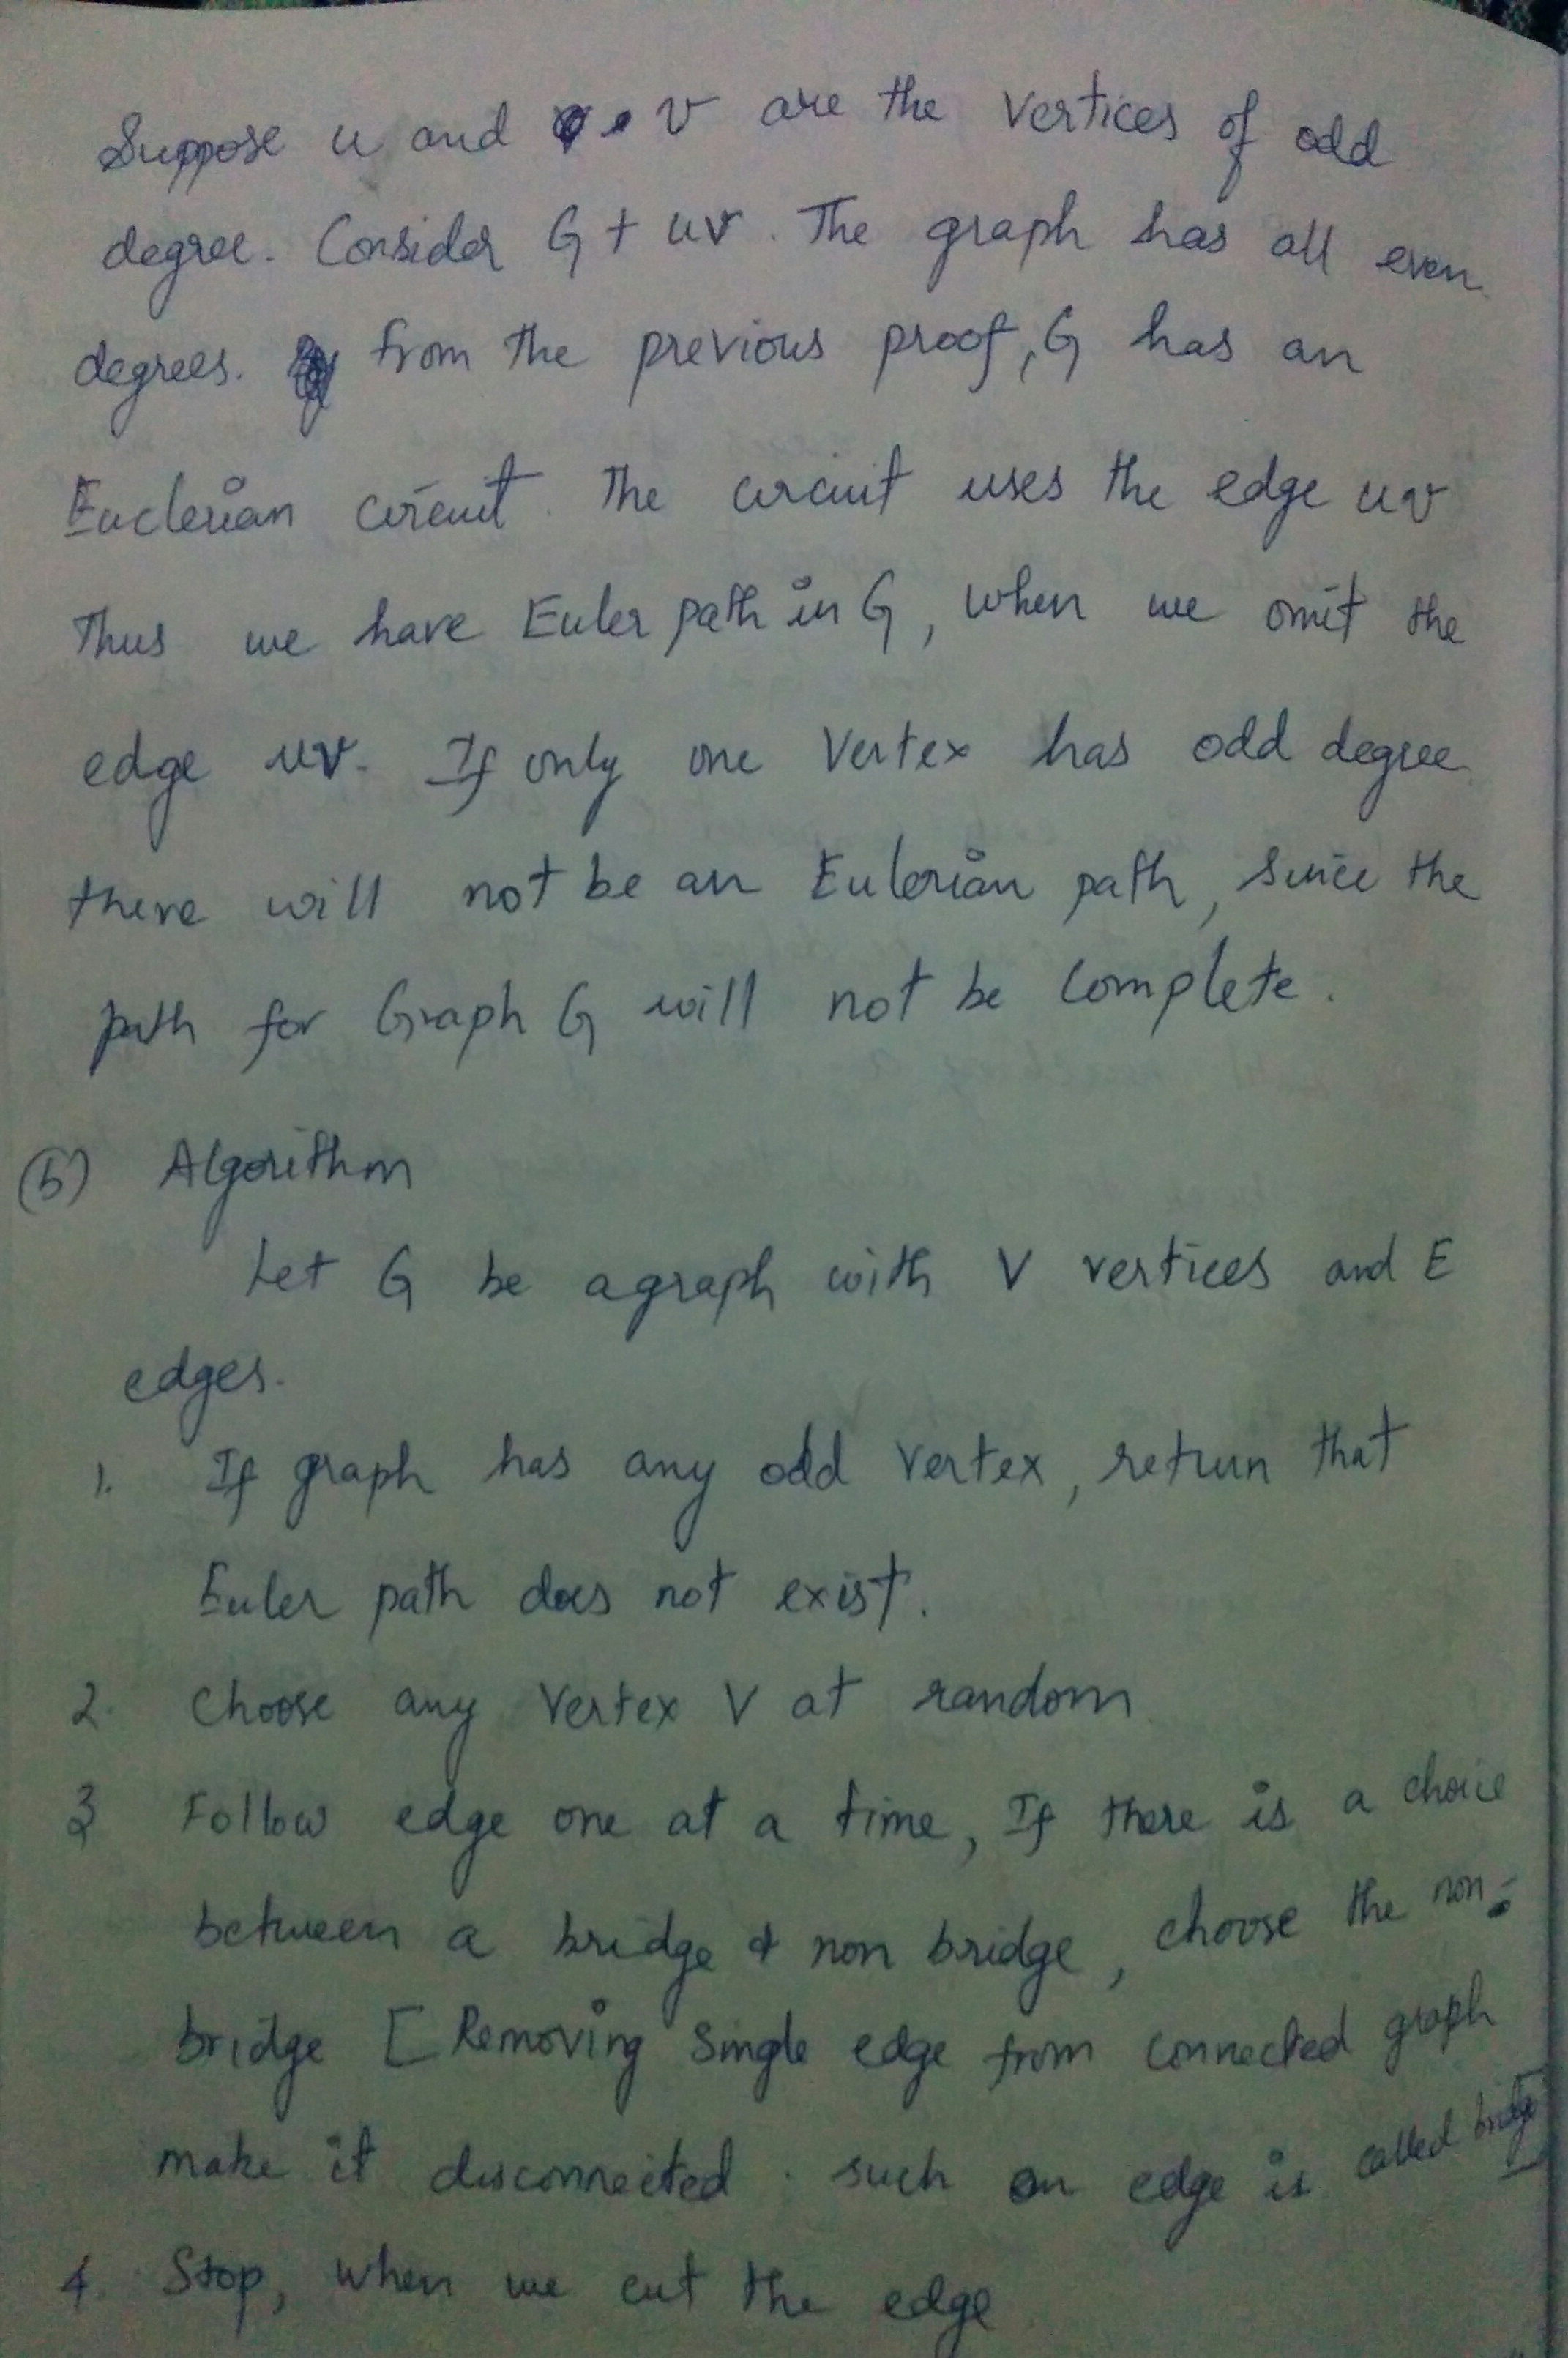 Suppose u and v are the vertices of odd
degree. Consider G + uv. The graph has all even
degrees. from the previous proof, G has an
Euclerian circuit. The circuit uses the edge uv
Thus we have Euler path in G, when we omit the
edge uv. If only one vertex has odd degree
there will not be an Eulerian path, since the
path for Graph G will not be complete.
(b) Algorithm
Let G be a graph with V vertices and E
edges.
1. If graph has any odd vertex, return that
Euler path does not exist.
2. Choose any vertex V at random
3 Follow edge one at a time, If there is a choice
between a bridge & non bridge, choose the non-
bridge [Removing single edge from connected graph
make it disconnected. such an edge is called bridge]
4. Stop, when we cut the edge